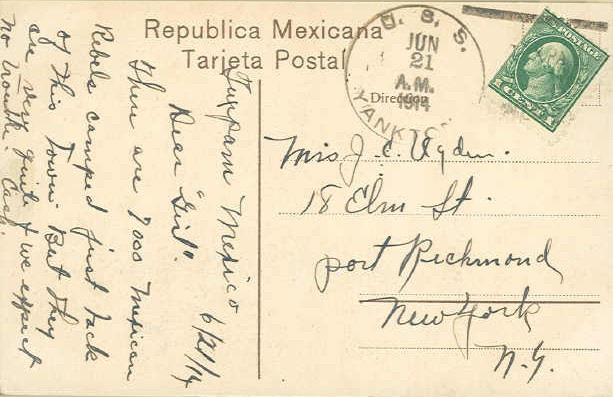 Republica Mexicana
Tarjeta Postal
Dirección
U. S. S.
JUN
21
A.M.
1914
YANKTON
POSTAGE
1 CENT 1
Tuxpam Mexico
6/21/14
Dear "Girl".
There are 7000 Mexican
Rebels camped just back
of this town. But they
are very quiet & we expect
no trouble.
Mrs J. C. Ogden.
18 Elm St.
Port Richmond
New York
N.Y.